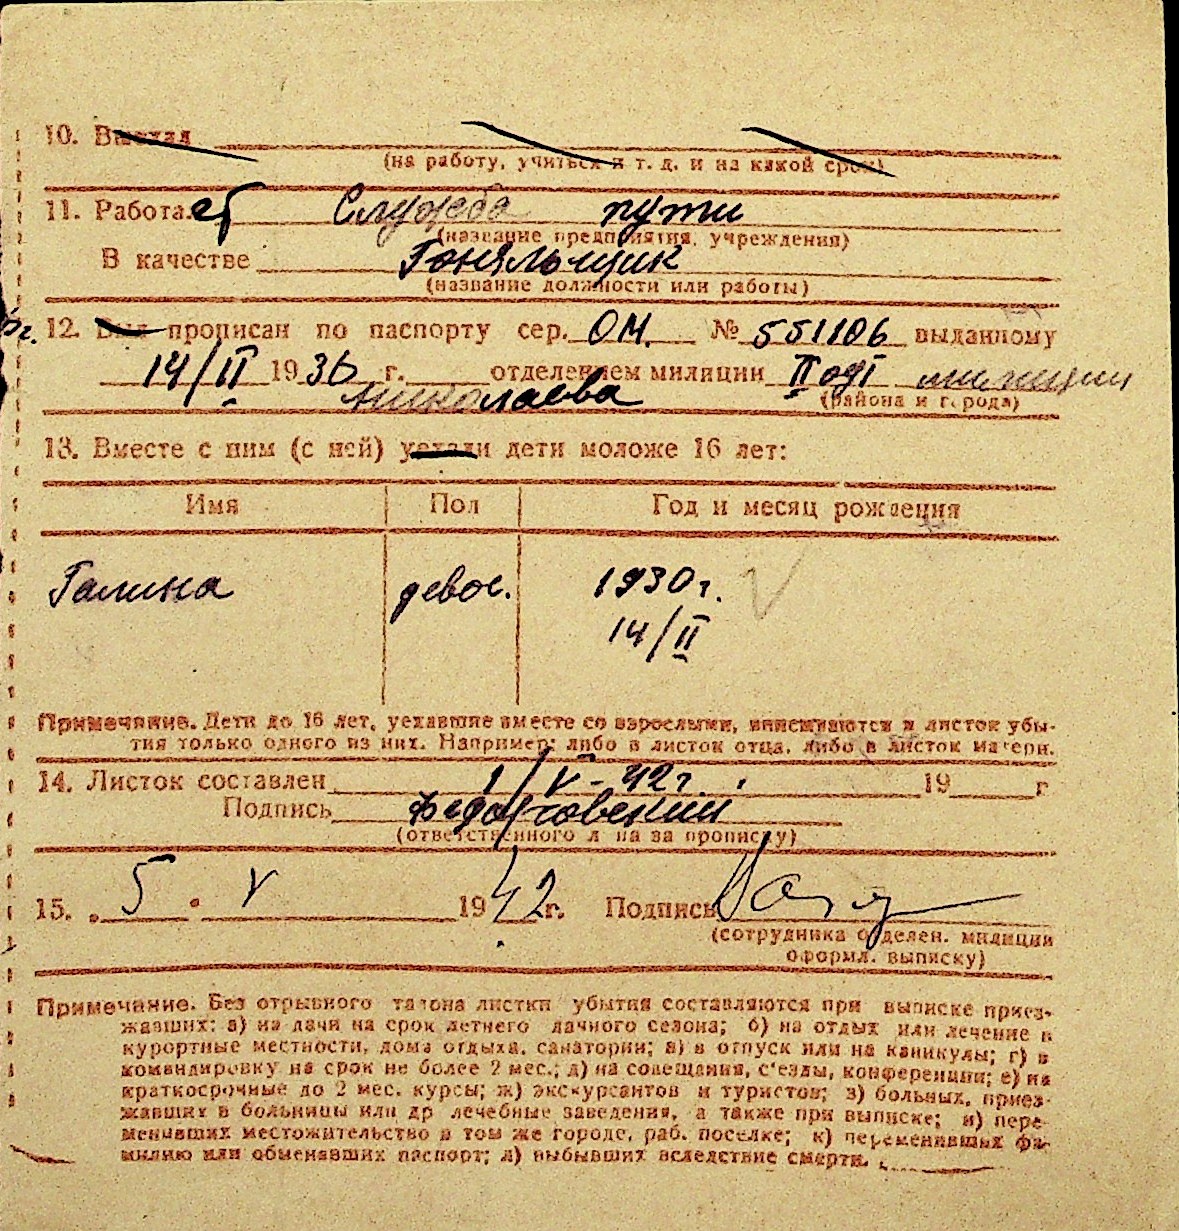 10. Выехал
(на работу, учиться и т. д. и на какой срок)
11. Работает Служба пути
(название предприятия, учреждения)
В качестве Гоняльщик
(название должности или работы)
12. Был прописан по паспорту сер. ОМ. № 551106 выданному
14/II 1936 г. отделением милиции II одт милиции
Николаева
(района и города)
13. Вместе с ним (с ней) уехали дети моложе 16 лет:
Имя Пол Год и месяц рождения
Галина девоч. 1930 г.
14/II
Примечание. Дети до 16 лет, уехавшие вместе со взрослыми, вписываются в листок убы-
тия только одного из них. Например: либо в листок отца, либо в листок матери.
14. Листок составлен 1/V - 42 г. 19 г
Подпись
(ответственного лица за прописку)
15. 5. V 1942 г. Подпись
(сотрудника отделен. милиции
оформл. выписку)
Примечание. Без отрывного талона листки убытия составляются при выписке приез-
жавших: а) на дачи на срок летнего дачного сезона; б) на отдых или лечение в
курортные местности, дома отдыха, санатории; в) в отпуск или на каникулы; г) в
командировку на срок не более 2 мес.; д) на совещания, с'езды, конференции; е) на
краткосрочные до 2 мес. курсы; ж) экскурсантов и туристов; з) больных, приез-
жавших в больницы или др лечебные заведения, а также при выписке; и) пере-
менивших местожительство в том же городе, раб. поселке; к) переменивших фа-
милию или обменявших паспорт; л) выбывших вследствие смерти.